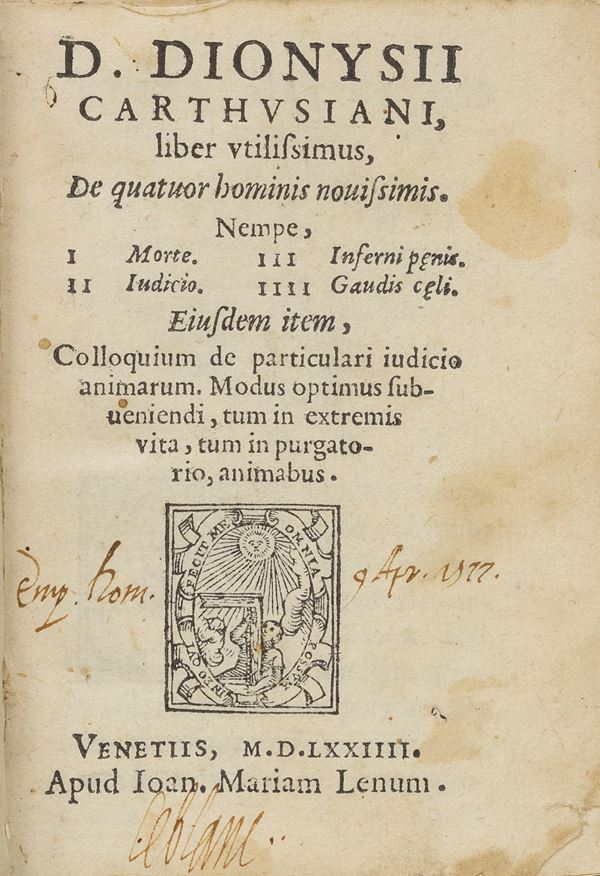 D. DIONYSII
CARTHVSIANI,
liber vtiliſsimus,
De quatuor hominis nouiſsimis.
Nempe,
I Morte. III Inferni pęnis.
II Iudicio. IIII Gaudis cęli.
Eiuſdem item,
Colloquium de particulari iudicio
animarum. Modus optimus ſub-
ueniendi, tum in extremis
vita, tum in purgato-
rio, animabus.
FECIT ME OMNIA
Emp. Rom. 9 Apr. 1577.
VENETIIS, M.D.LXXIIII.
Apud Ioan. Mariam Lenum.
leblanc